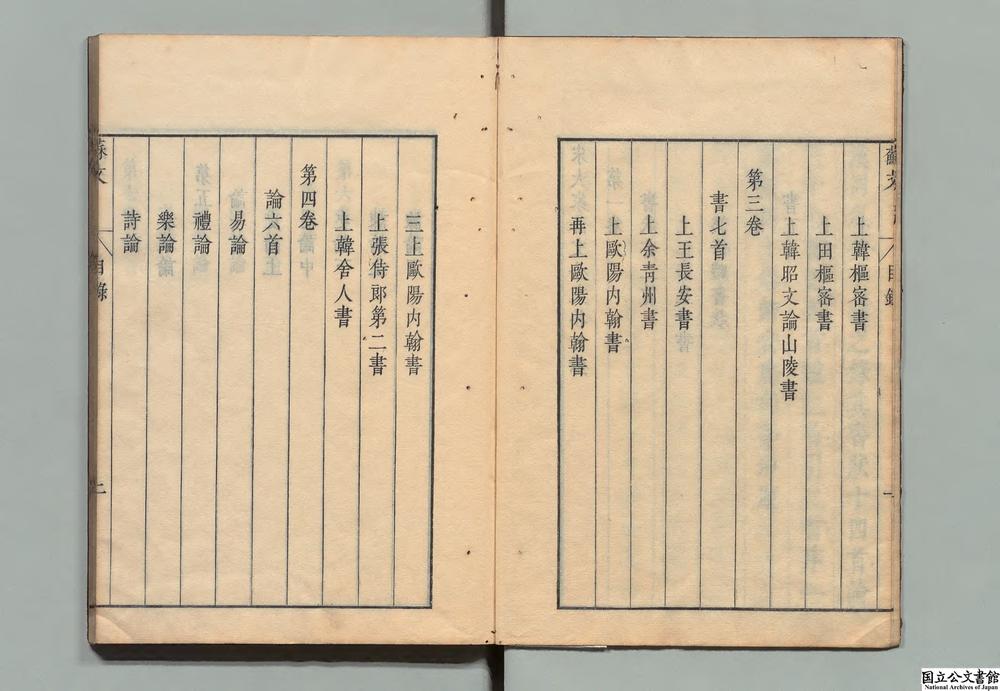 上韓樞密書
上田樞密書
上韓昭文論山陵書
第三卷
書七首
上王長安書
上余靑州書
上歐陽内翰書
再上歐陽内翰書
三上歐陽内翰書
上張侍郞第二書
上韓舍人書
第四卷
論六首
易論
禮論
樂論
詩論
蘇文
目錄
二
目錄
一
国立公文書館
National Archives of Japan